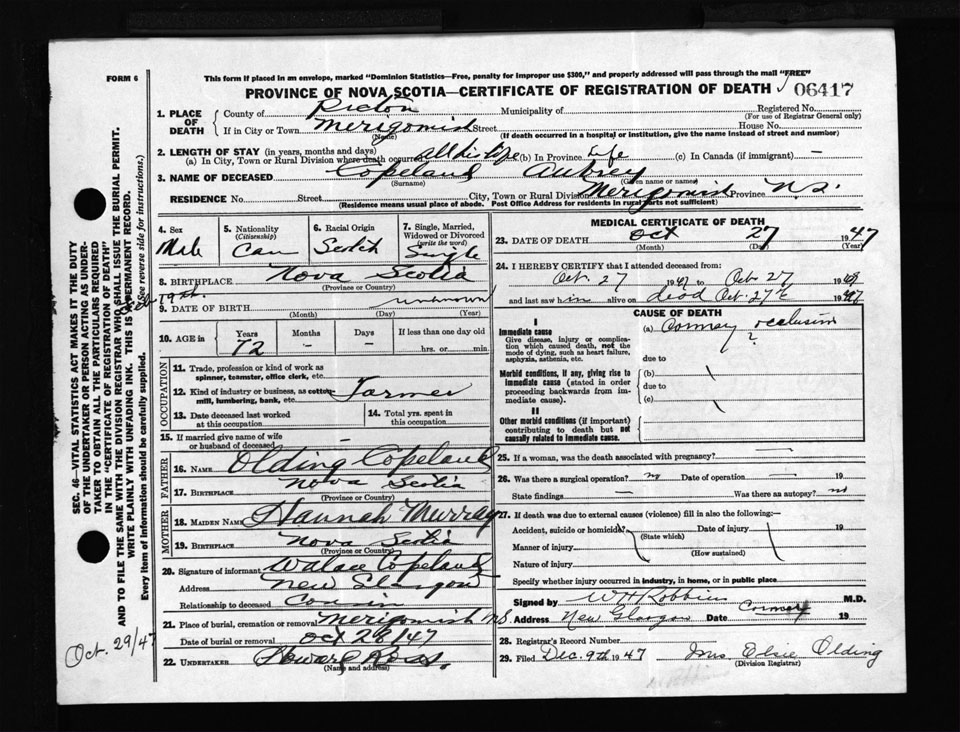 FORM 6
This form if placed in an envelope, marked "Dominion Statistics—Free, penalty for improper use $300," and properly addressed will pass through the mail "FREE"
PROVINCE OF NOVA SCOTIA—CERTIFICATE OF REGISTRATION OF DEATH 06417
1. PLACE OF DEATH
County of Pictou Municipality of Registered No.
(For use of Registrar General only)
If in City or Town Merigomish Street House No.
(Name) (If death occurred in a hospital or institution, give the name instead of street and number)
2. LENGTH OF STAY (in years, months and days)
(a) In City, Town or Rural Division where death occurred all his life (b) In Province Life (c) In Canada (if immigrant) —
3. NAME OF DECEASED Copeland Aubrey
(Surname) (Given name or names)
RESIDENCE No. Street City, Town or Rural Division Merigomish Province N.S.
(Residence means usual place of abode. Post Office Address for residents in rural parts not sufficient)
4. Sex Male
5. Nationality (Citizenship) Can
6. Racial Origin Scotch
7. Single, Married, Widowed or Divorced (write the word) Single
8. BIRTHPLACE Nova Scotia
(Province or Country)
9. DATE OF BIRTH unknown
(Month) (Day) (Year)
10. AGE in Years Months Days If less than one day old
72 — — hrs. or min.
OCCUPATION
11. Trade, profession or kind of work as spinner, teamster, office clerk, etc.
12. Kind of industry or business, as cotton mill, lumbering, bank, etc. Farmer
13. Date deceased last worked at this occupation
14. Total yrs. spent in this occupation
15. If married give name of wife or husband of deceased —
FATHER
16. NAME Olding Copeland
17. BIRTHPLACE Nova Scotia
(Province or Country)
MOTHER
18. MAIDEN NAME Hannah Murray
19. BIRTHPLACE Nova Scotia
(Province or Country)
20. Signature of informant Walace Copeland
Address New Glasgow
Relationship to deceased Cousin
21. Place of burial, cremation or removal Merigomish NS
Date of burial or removal Oct 28/47
22. UNDERTAKER Howard Ross.
(Name and address)
MEDICAL CERTIFICATE OF DEATH
23. DATE OF DEATH Oct 27 1947
(Month) (Day) (Year)
24. I HEREBY CERTIFY that I attended deceased from:
Oct. 27 1947 to Oct 27 19
and last saw him alive on dead Oct. 27th 1947
CAUSE OF DEATH
I
Immediate cause
Give disease, injury or complication which caused death, not the mode of dying, such as heart failure, asphyxia, asthenia, etc.
(a) Coronary occlusion
?
due to
Morbid conditions, if any, giving rise to immediate cause (stated in order proceeding backwards from immediate cause).
(b)
due to
(c)
II
Other morbid conditions (if important) contributing to death but not causally related to immediate cause.
25. If a woman, was the death associated with pregnancy? —
26. Was there a surgical operation? no Date of operation — 19
State findings — Was there an autopsy? no
27. If death was due to external causes (violence) fill in also the following:—
Accident, suicide or homicide? Date of injury 19
(State which)
Manner of injury
(How sustained)
Nature of injury
Specify whether injury occurred in industry, in home, or in public place
Signed by W H Robbins M.D.
Address New Glasgow Date 19
28. Registrar's Record Number
29. Filed Dec. 9th 1947 Mrs Elsie Olding
(Division Registrar)
SEC. 46—VITAL STATISTICS ACT MAKES IT THE DUTY OF THE UNDERTAKER OR PERSON ACTING AS UNDERTAKER TO OBTAIN ALL THE PARTICULARS REQUIRED IN THE "CERTIFICATE OF REGISTRATION OF DEATH" AND TO FILE THE SAME WITH THE DIVISION REGISTRAR WHO SHALL ISSUE THE BURIAL PERMIT.
WRITE PLAINLY WITH UNFADING INK. THIS IS A PERMANENT RECORD.
Every item of information should be carefully supplied. (See reverse side for instructions.)
Oct. 29/47